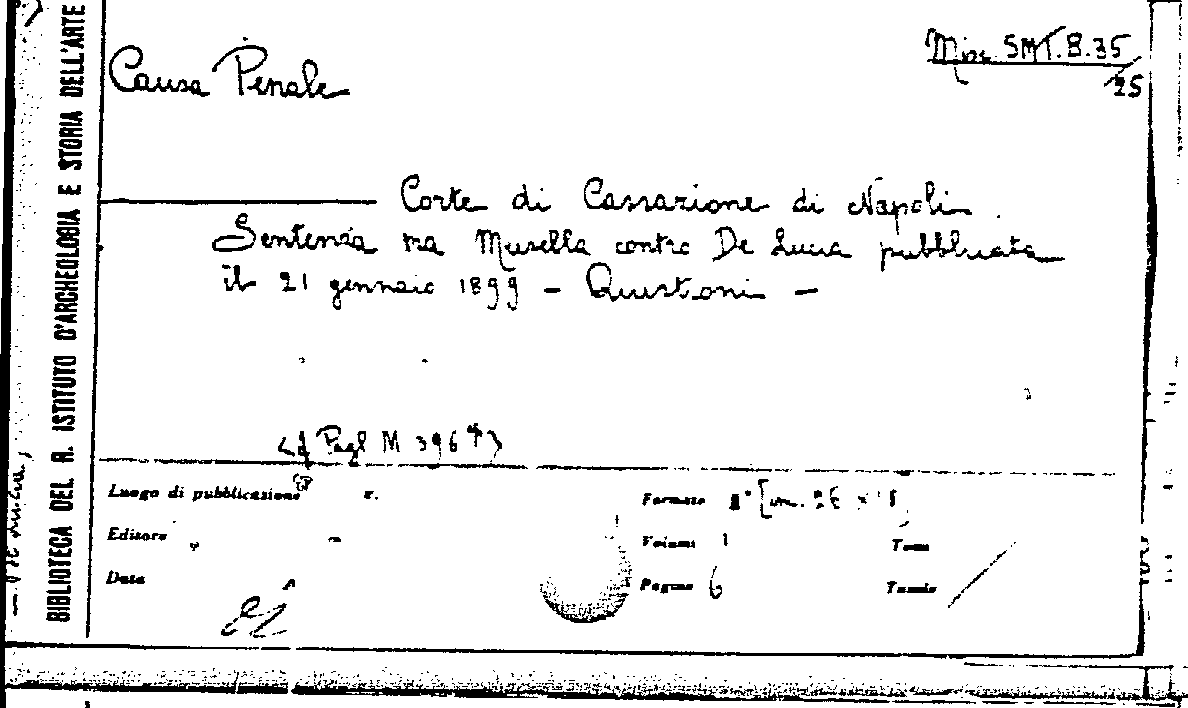 BIBLIOTECA DEL R. ISTITUTO D'ARCHEOLOGIA E STORIA DELL'ARTE
Causa Penale
Misc. SMT. 8.35/25
Corte di Cassazione di Napoli
Sentenza tra Musella contro De Lucia pubblicata
il 21 gennaio 1899 - Questioni -
Luogo di pubblicazione
Formato
Editore
Volumi 1
Tomi
Data
Pagine 6
Tavole